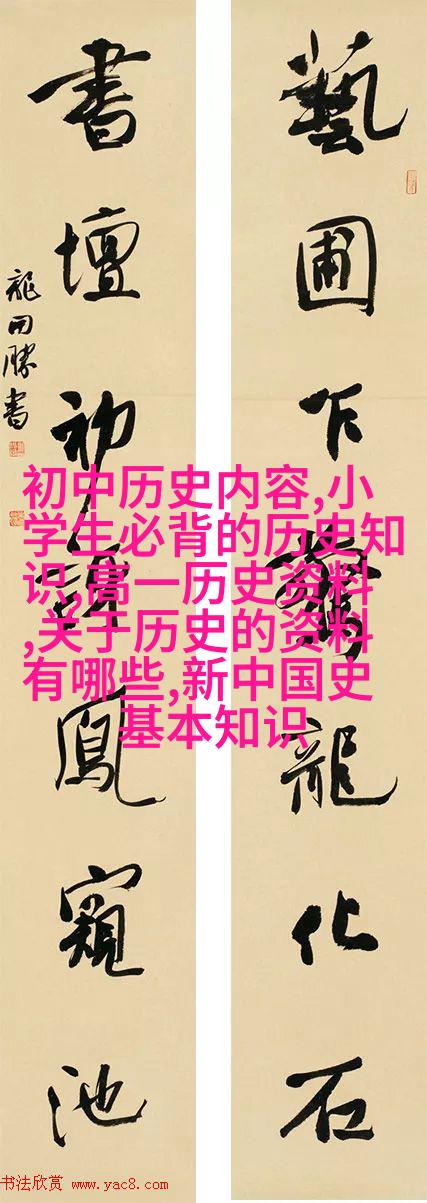 藝圃乍驚龍化石
書壇初鳳窺池
龍開勝書
初中历史内容,小
学生必背的历史知
识,高一历史资料
,关于历史的资料
有哪些,新中国史
基本知识
书法欣赏 www.yac8.com